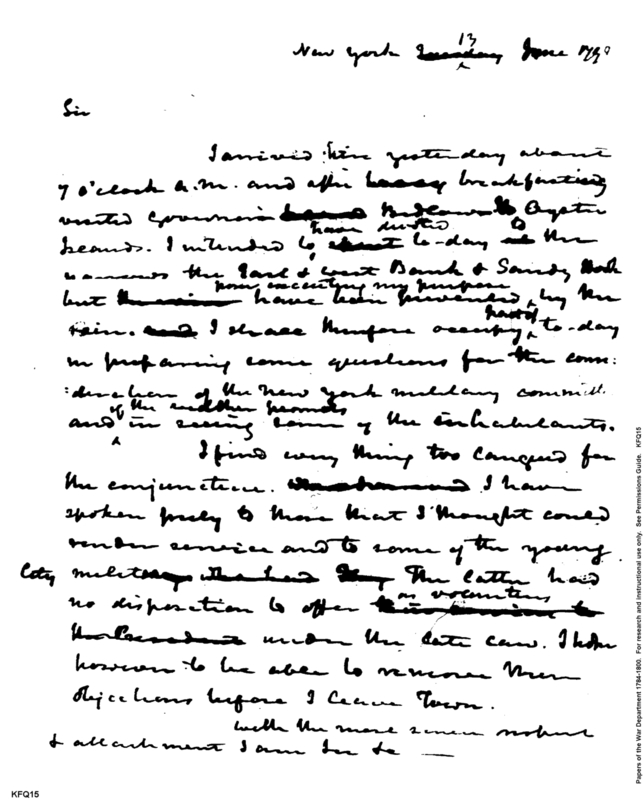 New York Tuesday 13 June 1798
Sir
I arrived here yesterday about
7 o'clock A.M. and after breakfasting
visited Governors Bedlows & Oyster
Islands. I intended to have devoted to-day to the
narrows the East & west Bank & Sandy Hook
but have been prevented from executing my purpose by the
rain. I shall therefore occupy part of to-day
in preparing some questions for the consi:
:deration of the New York military committee
and in seeing some of the inhabitants.
I find every thing too languid for
the conjuncture. I have
spoken freely to those that I thought could
render service and to some of the young
City military The latter had
no disposition to offer as volunteers
the President under the late law. I hope
however to be able to remove their
objections before I leave Town.
with the most sincere respect
& attachment I am Sir &c —
Papers of the War Department 1784-1800. For research and instructional use only. See Permissions Guide. KFQ15
KFQ15